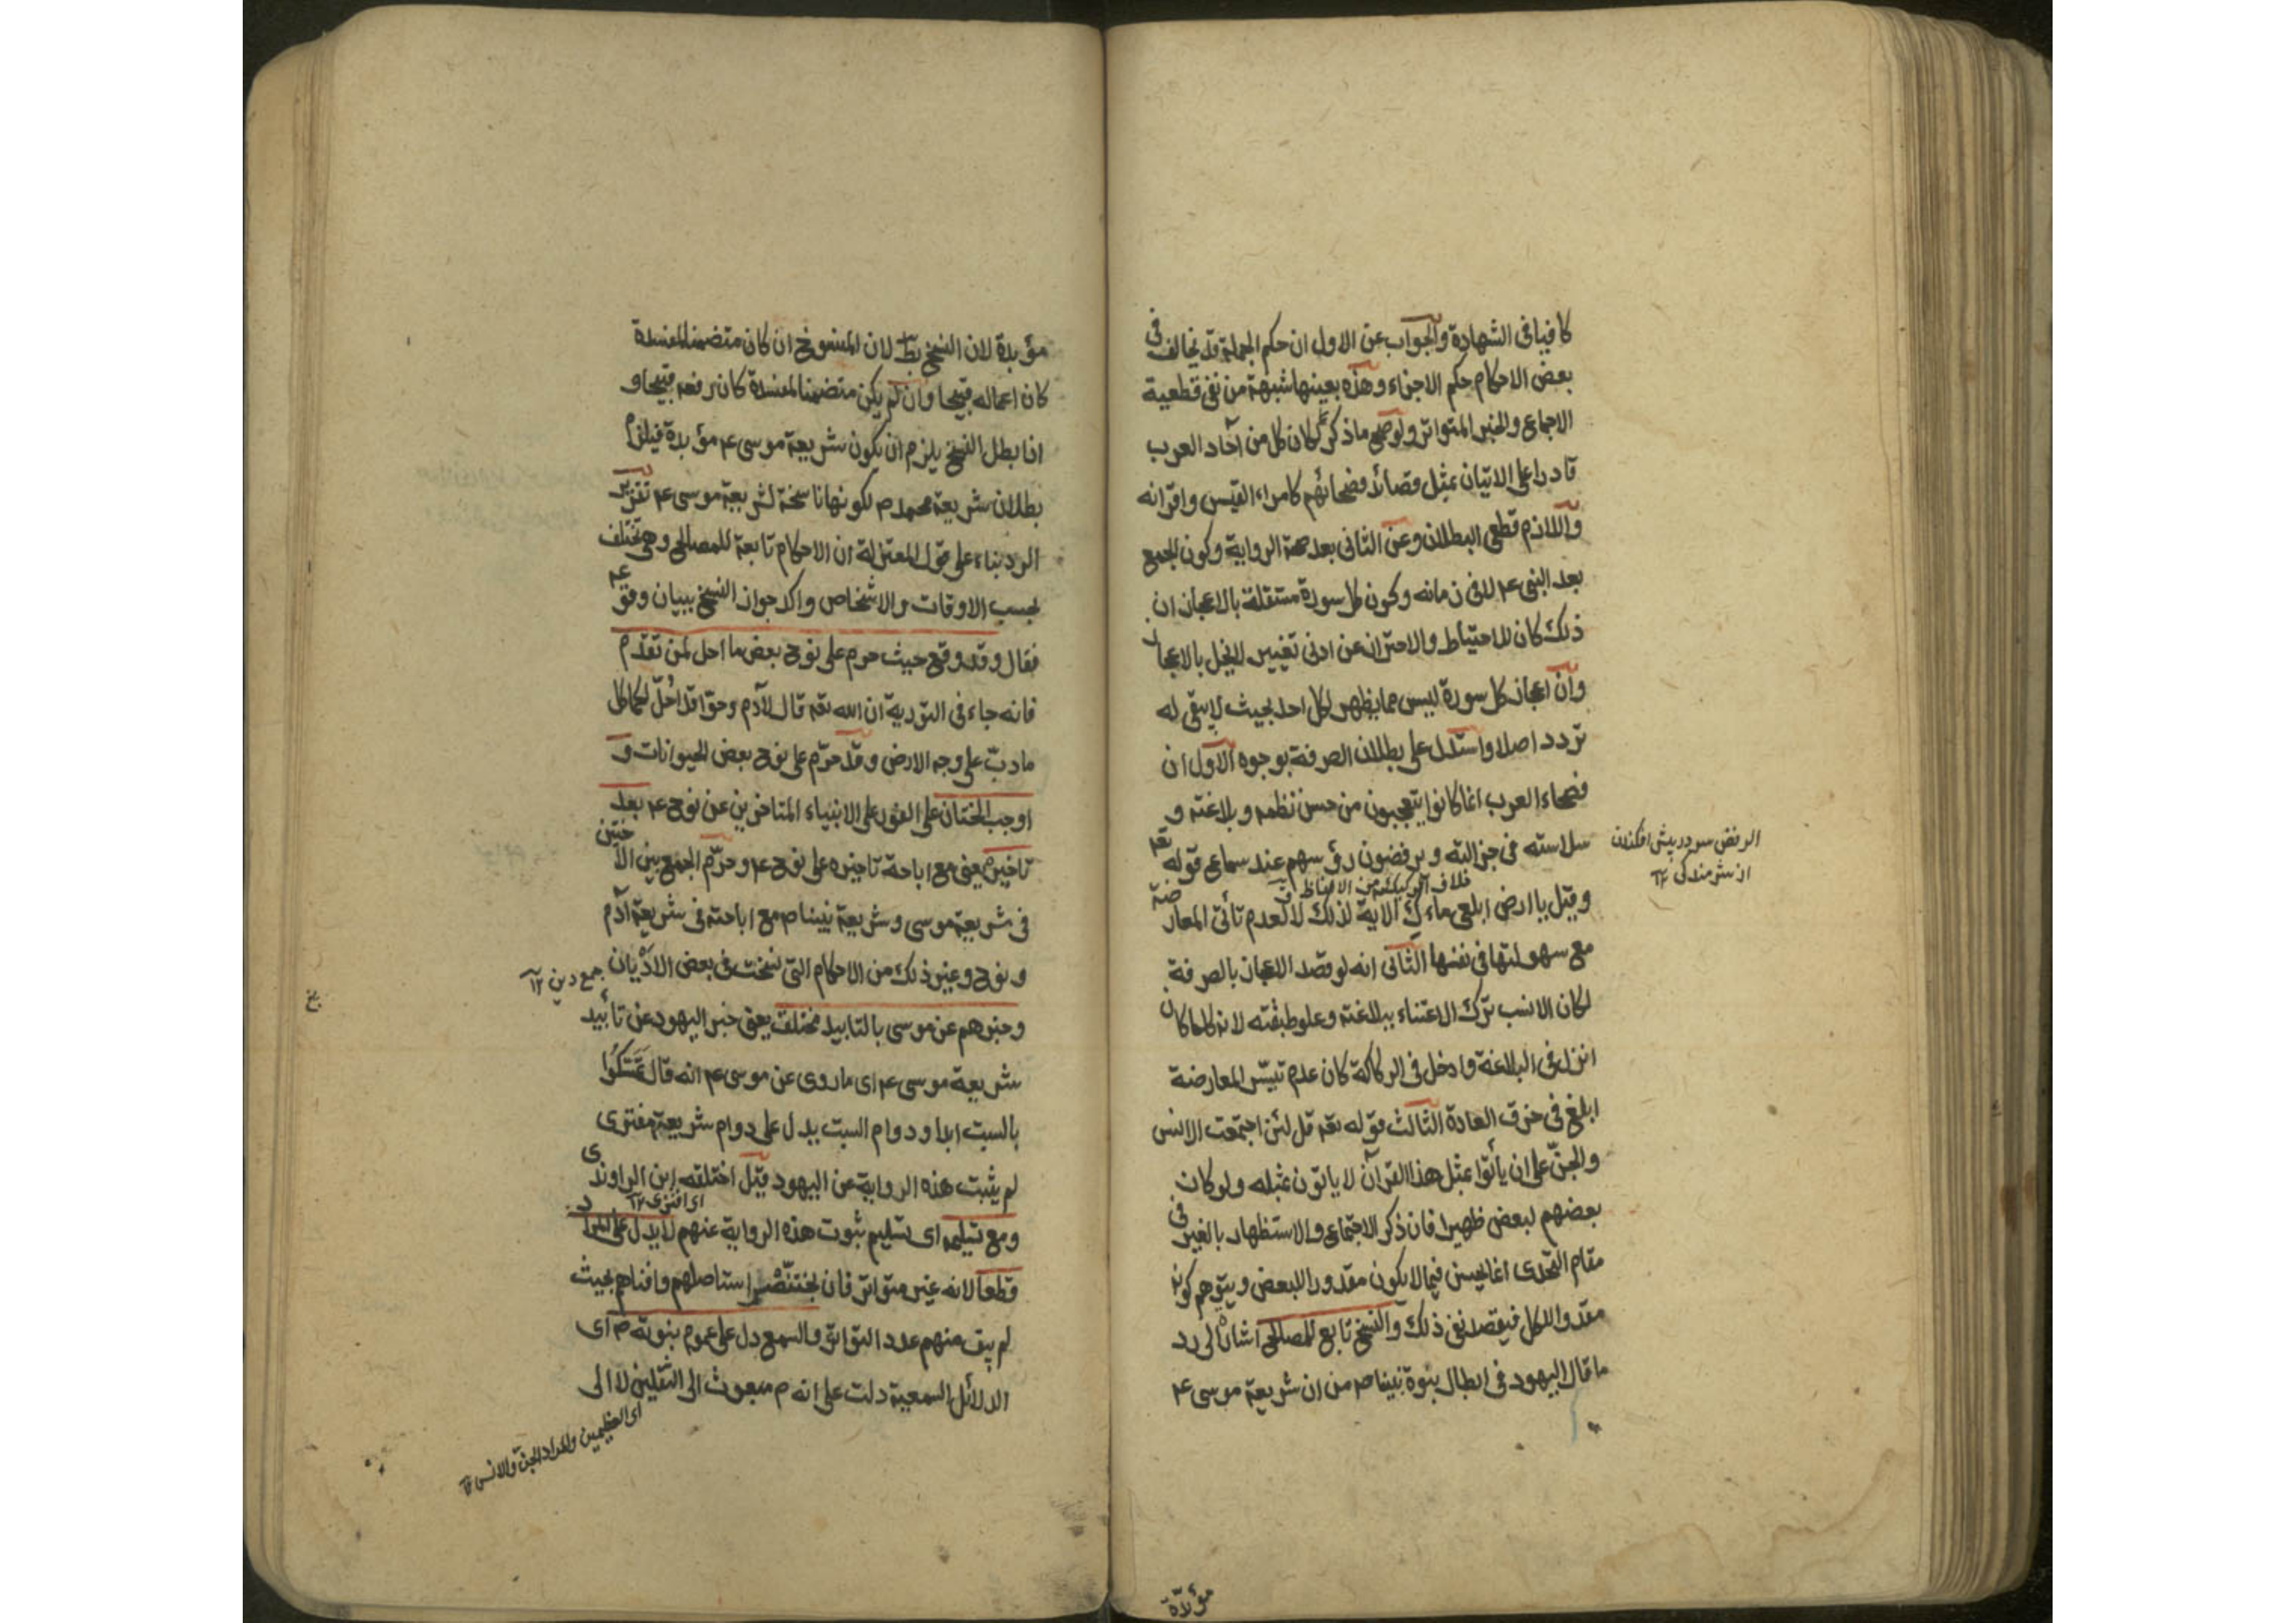 كافيا فى الشهادة والجواب عن الاول ان حكم الجملة قد يخالف فى
بعض الاحكام حكم الاجزاء وهذه بعينها شبهة من نفى قطعية
الاجماع والخبر المتواتر ولو صح ما ذكر لكان كل من آحاد العرب
قادرا على الاتيان بمثل قصائد فصحائهم كامراء القيس واقرانه
واللازم قطعى البطلان وعن الثانى بعد صحة الرواية وكون الجمع
بعد النبى عم لا فى زمانه وكون كل سورة مستقلة بالاعجاز ان
ذلك كان للاحتياط والاحتراز عن ادنى تغيير لا يخل بالاعجاز
وان اعجاز كل سورة ليس مما يظهر لكل احد بحيث لا يبقى له
تردد اصلا واستدل على بطلان الصرفة بوجوه الاول ان
فصحاء العرب انما كانوا يتعجبون من حسن نظمه وبلاغته و
سلاسته فى جزالته ويرفضون رؤسهم عند سماع قوله تعه
الرفض سر در پیش افکندن
از شرمندکی ۱۲
خلاف الركيكة من الالفاظ
وقيل يا ارض ابلعى ماءك الاية لذلك لا لعدم تأتى المعارضة
مع سهولتها فى نفسها الثانى انه لو قصد الاعجاز بالصرفة
لكان الانسب ترك الاعتناء ببلاغته وعلو طبقته لانه كلما كان
انزل فى البلاغة وادخل فى الركاكة كان عدم تيسّر المعارضة
ابلغ فى خرق العادة الثالث قوله تعه قل لئن اجتمعت الانس
والجنّ على ان يأتوا بمثل هذا القرآن لا ياتون بمثله ولو كان
بعضهم لبعض ظهيرا فان ذكر الاجتماع والاستظهار بالغير فى
مقام التحدى انما يحسن فيما لا يكون مقدورا للبعض ويتوهم كونه
مقدورا للكل فيقصد نفى ذلك والنسخ تابع للمصالح اشارة الى رد
ما قال اليهود فى ابطال نبوة نبينا صم من ان شريعة موسى عم
مؤبدة
مؤبدة لان النسخ بط لان المنسوخ ان كان متضمنا لمفسدة
كان اعماله قبيحا وان لم يكن متضمنا لمفسدة كان رفعه قبيحا و
اذا بطل النسخ يلزم ان يكون شريعة موسى عم مؤبدة فيلزم
بطلان شريعة محمد م لكونها ناسخة لشريعة موسى عم تقرير
الرد بناء على قول المعتزلة ان الاحكام تابعة للمصالح وهى تختلف
بحسب الاوقات والاشخاص واكد جواز النسخ ببيان وقوعه
فقال وقد وقع حيث حرم على نوح بعض ما احل لمن تقدم
فانه جاء فى التورية ان الله تعه قال لآدم وحوّا قد اُحلّ لكما كل
ما دبّ على وجه الارض وقد حرّم على نوح بعض الحيوانات و
اوجب الختان على الفور على الانبياء المتاخرين عن نوح عم بعد
تاخيره يعنى مع اباحة تاخيره على نوح عم وحرّم الجمع بين الاختين
فى شريعة موسى وشريعة نبينا صم مع اباحته فى شريعة آدم
ونوح وغير ذلك من الاحكام التى نسخت فى بعض الادْيان
جمع دين ۱۲
وخبرهم عن موسى بالتابيد مختلق يعنى خبر اليهود عن تأبيد
شريعة موسى عم اى ما روى عن موسى عم انه قال تَمَسَّكُوا
بالسبت ابدا ودوام السبت يدل على دوام شريعة مفترى
لم يثبت هذه الرواية عن اليهود قيل اختلقه ابن الراوندى
اى افترى ۱۲
ومع تسليمه اى تسليم ثبوت هذه الرواية عنهم لا يدل على المراد
قطعا لانه غير متواتر فان بختنصّر استاصلهم وافناهم بحيث
لم يبق منهم عدد التواتر والسمع دل على عموم نبوته م اى
الدلائل السمعية دلت على انه م مبعوث الى الثقلين لا الى
اى العظيمين والمراد الجن والانس ۱۲